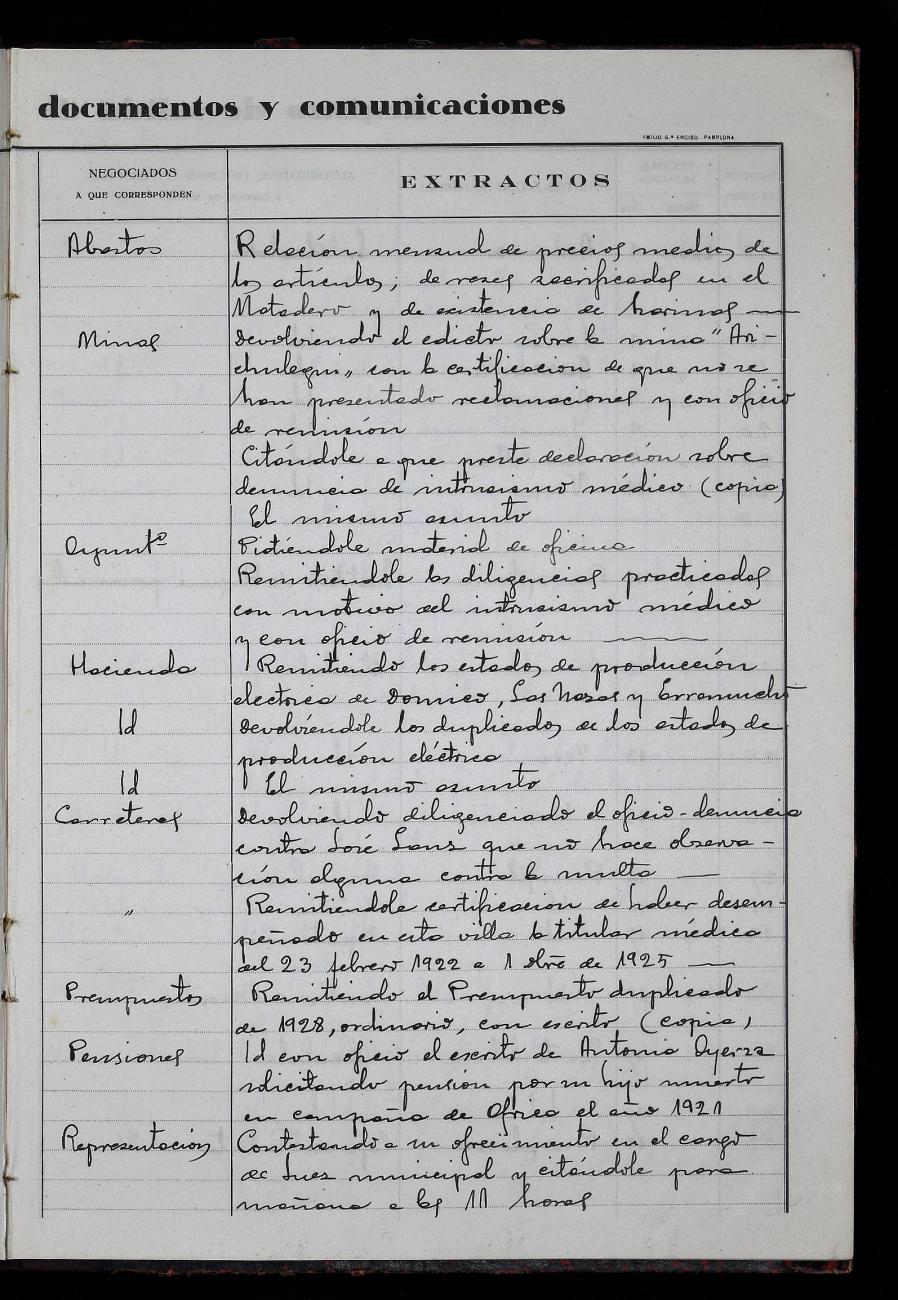 documentos y comunicaciones
EMILIO G.ª ENCISO.-PAMPLONA
NEGOCIADOS
A QUE CORRESPONDEN
EXTRACTOS
Abastos
Relación mensual de precios medios de
los artículos; de reses sacrificadas en el
Matadero y de existencia de harinas —
Minas
Devolviendo el edicto sobre la mina "Ari-
chulegui" con la certificacion de que no se
han presentado reclamaciones y con oficio
de remisión
Citándole a que preste declaración sobre
denuncia de intrusismo médico (copia)
El mismo asunto
Ayuntº
Pidiéndole material de oficina
Remitiendole las diligencias practicadas
con motivo del intrusismo médico
y con oficio de remisión —
Hacienda
Remitiendo los estados de producción
electrica de Domico, Las Nasas y Erramucho
Id
Devolviéndole los duplicados de los estados de
producción eléctrica
Id
El mismo asunto
Carreteras
Devolviendo diligenciado el oficio-denuncia
contra José Sanz que no hace observa-
ción alguna contra la multa —
"
Remitiendole certificacion de haber desem-
peñado en esta villa la titular médica
del 23 febrero 1922 a 1 Dbre de 1925 —
Presupuestos
Remitiendo el Presupuesto duplicado
de 1928, ordinario, con escrito (copia)
Pensiones
Id con oficio el escrito de Antonia Oyerza
solicitando pensión por su hijo muerto
en campaña de Africa el año 1921
Representación
Contestando a su ofrecimiento en el cargo
de Juez municipal y citándole para
mañana a las 11 horas